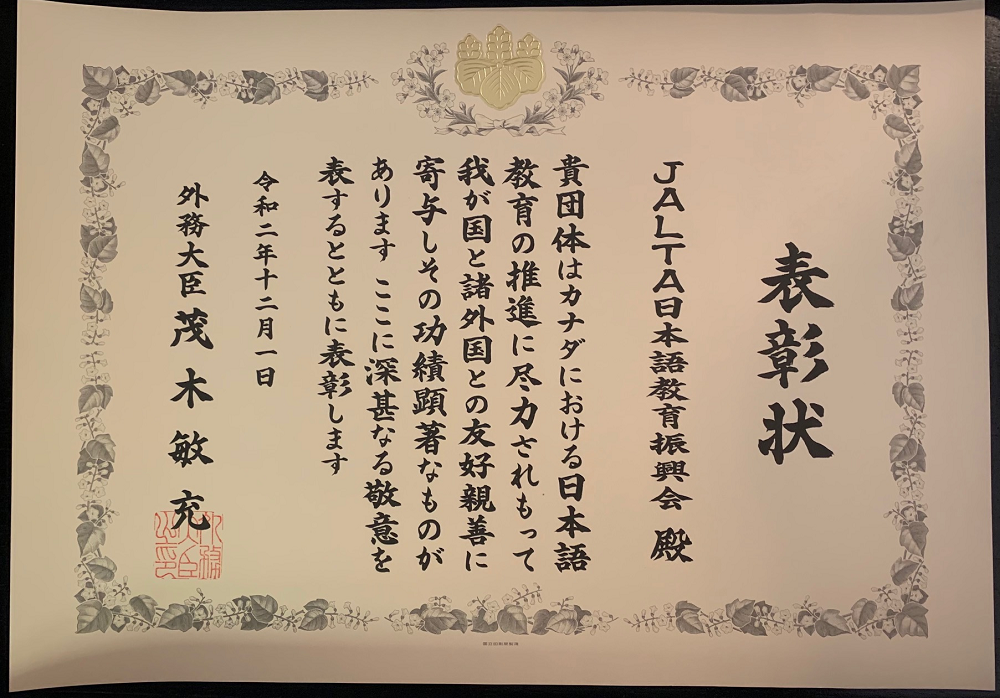 表彰状
JALTA日本語教育振興会 殿
貴団体はカナダにおける日本語
教育の推進に尽力されもって
我が国と諸外国との友好親善に
寄与しその功績顕著なものが
あります ここに深甚なる敬意を
表するとともに表彰します
令和二年十二月一日
外務大臣 茂木敏充
外務大臣之印